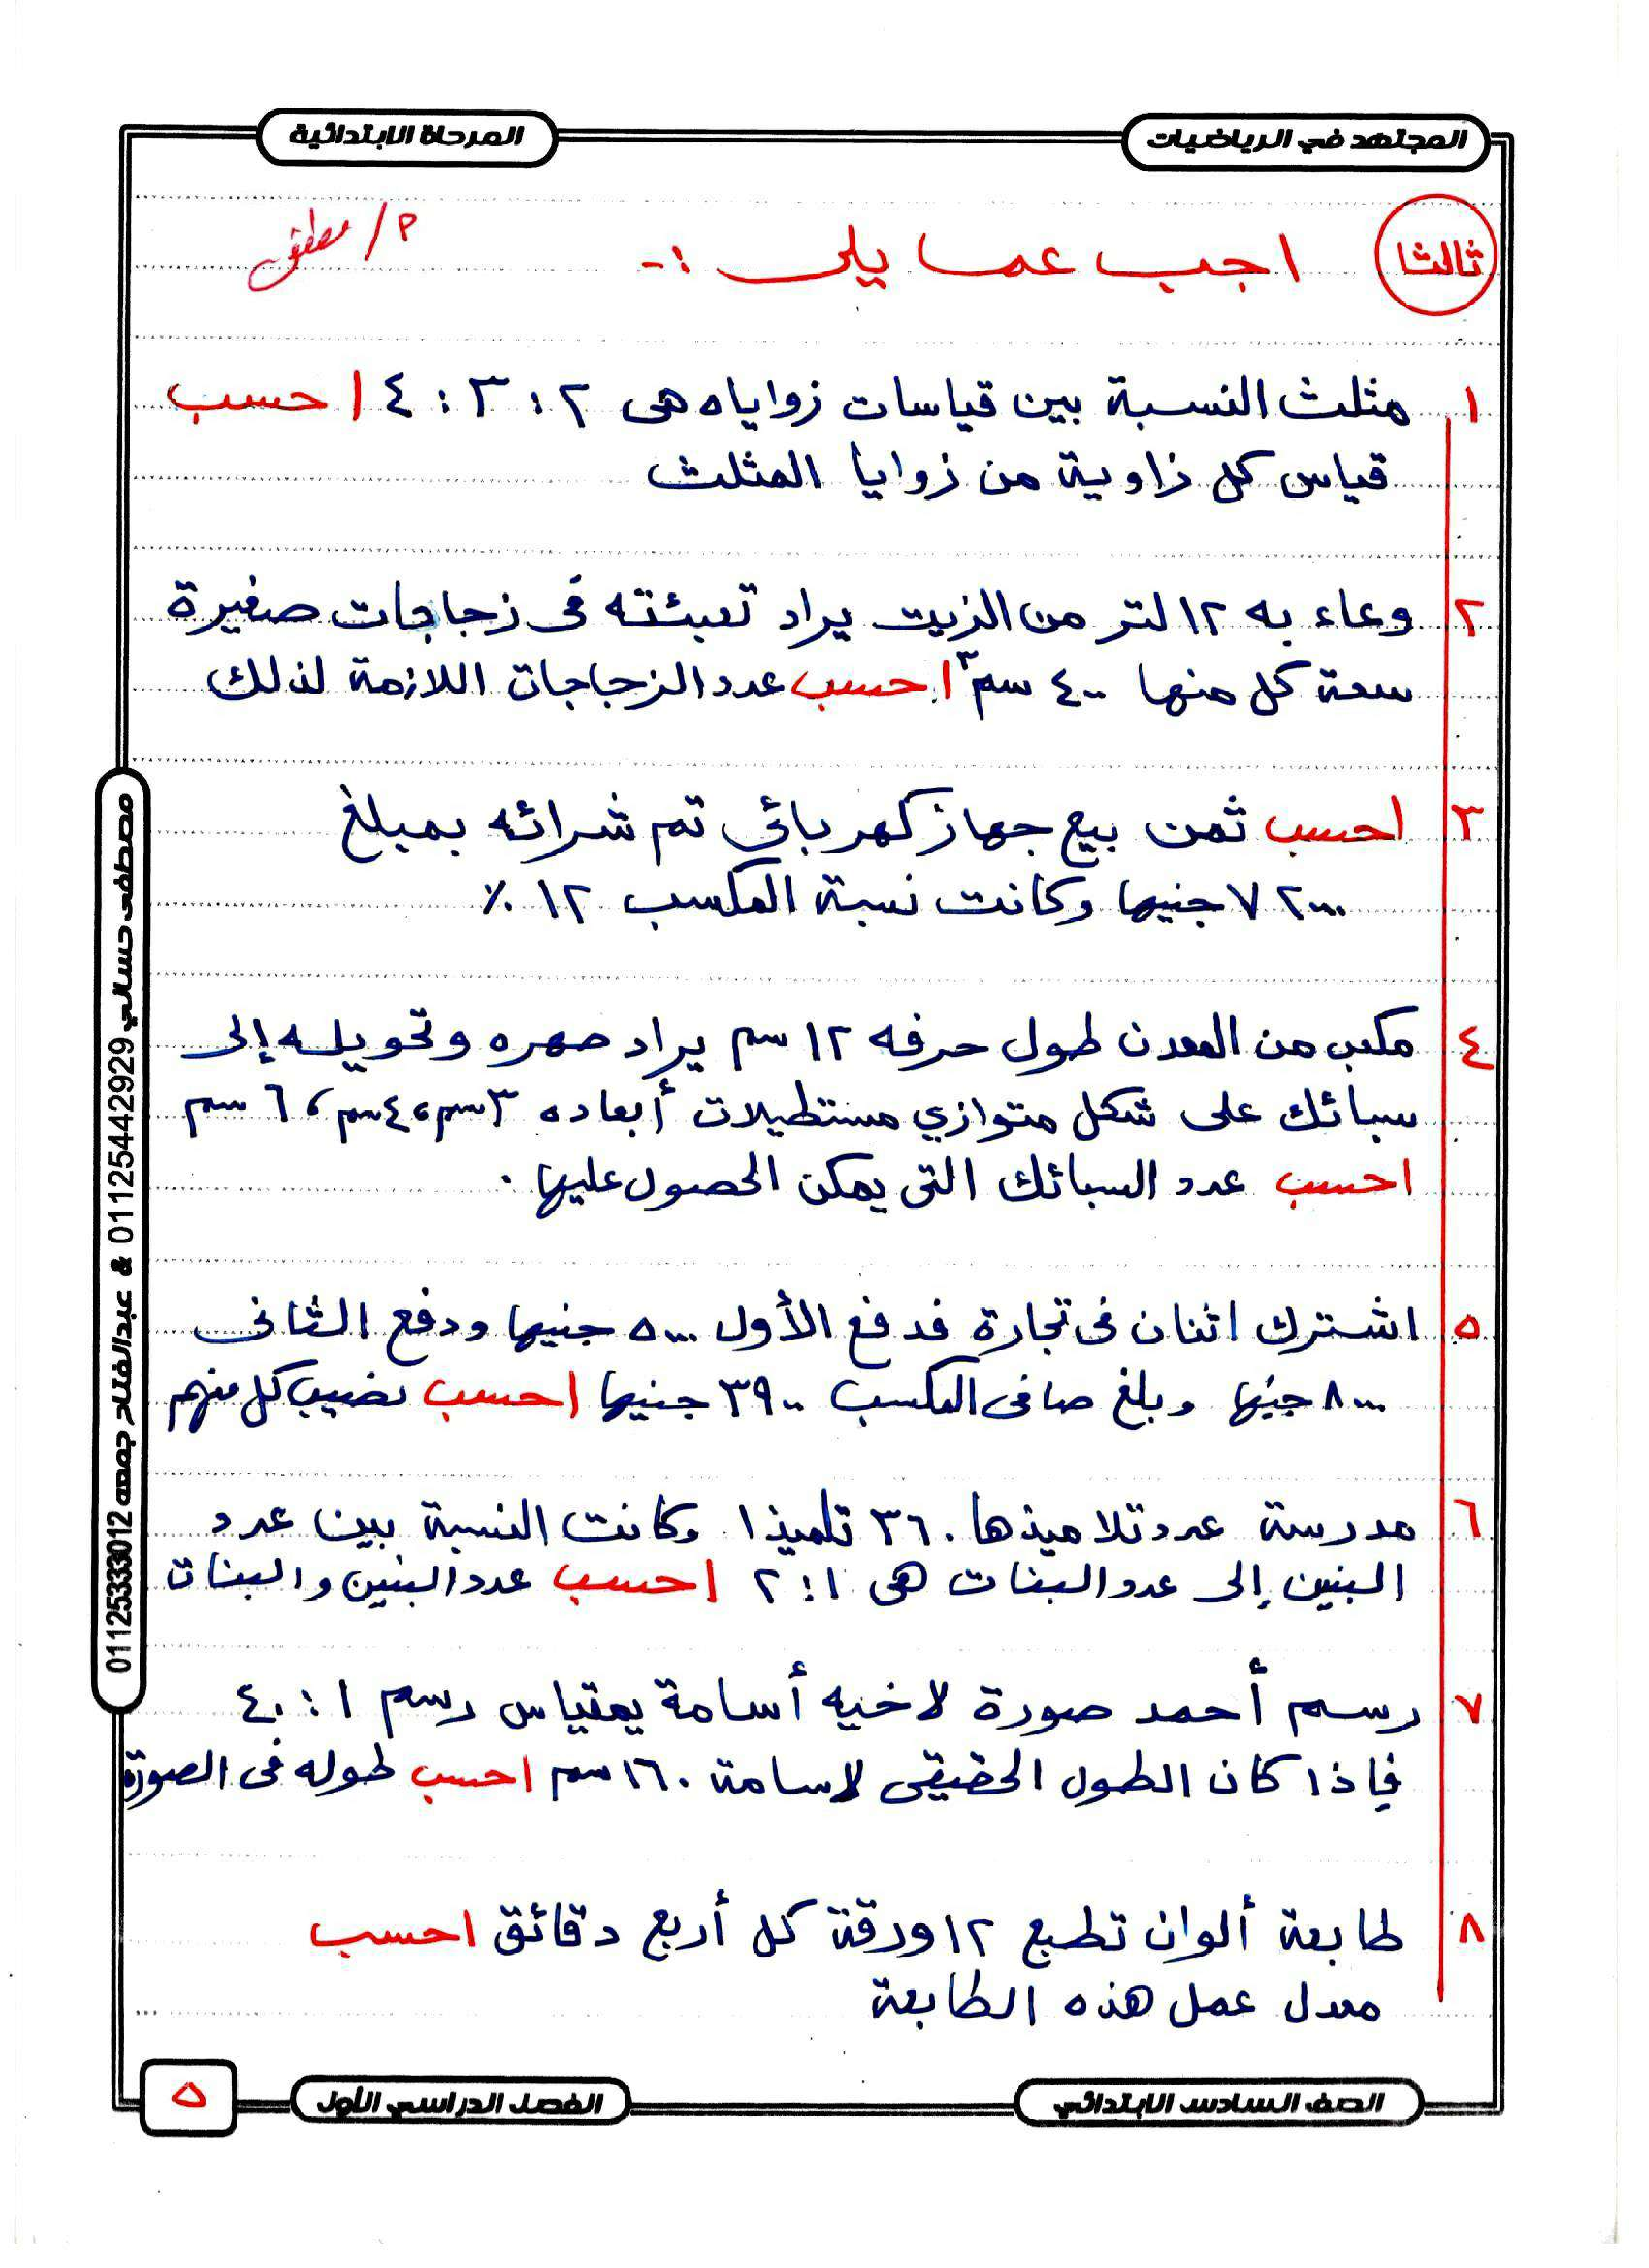 المجتهد في الرياضيات
المرحلة الابتدائية
ثالثا
اجب عما يلى :-
م/ مصطفى
١ مثلث النسبة بين قياسات زواياه هى ٢ : ٣ : ٤ احسب
قياس كل زاوية من زوايا المثلث
٢ وعاء به ١٢ لتر من الزيت يراد تعبئته فى زجاجات صغيرة
سعة كل منها ٤٠٠ سم٣ احسب عدد الزجاجات اللازمة لذلك
٣ احسب ثمن بيع جهاز كهربائى تم شرائه بمبلغ
٧٢٠٠٠ جنيها وكانت نسبة المكسب ١٢ ٪
٤ مكعب من المعدن طول حرفه ١٢ سم يراد صهره وتحويله إلى
سبائك على شكل متوازي مستطيلات أبعاده ٣سم ، ٤سم ، ٦ سم
احسب عدد السبائك التى يمكن الحصول عليها .
٥ اشترك اثنان فى تجارة فدفع الأول ٥٠٠٠ جنيها ودفع الثانى
٨٠٠٠ جنيها وبلغ صافى المكسب ٣٩٠٠ جنيها احسب نصيب كل منهم
٦ مدرسة عدد تلاميذها ٣٦٠ تلميذا وكانت النسبة بين عدد
البنين إلى عدد البنات هى ١ : ٢ احسب عدد البنين والبنات
٧ رسم أحمد صورة لاخيه أسامة بمقياس رسم ١ : ٤٠
فإذا كان الطول الحقيقى لاسامة ١٦٠ سم احسب طوله فى الصورة
٨ طابعة ألوان تطبع ١٢ ورقة كل أربع دقائق احسب
معدل عمل هذه الطابعة
مصطفى حسالي 01125442929 & عبدالفتاح جمعه 01125333012
الصف السادس الابتدائي
الفصل الدراسي الأول
٥